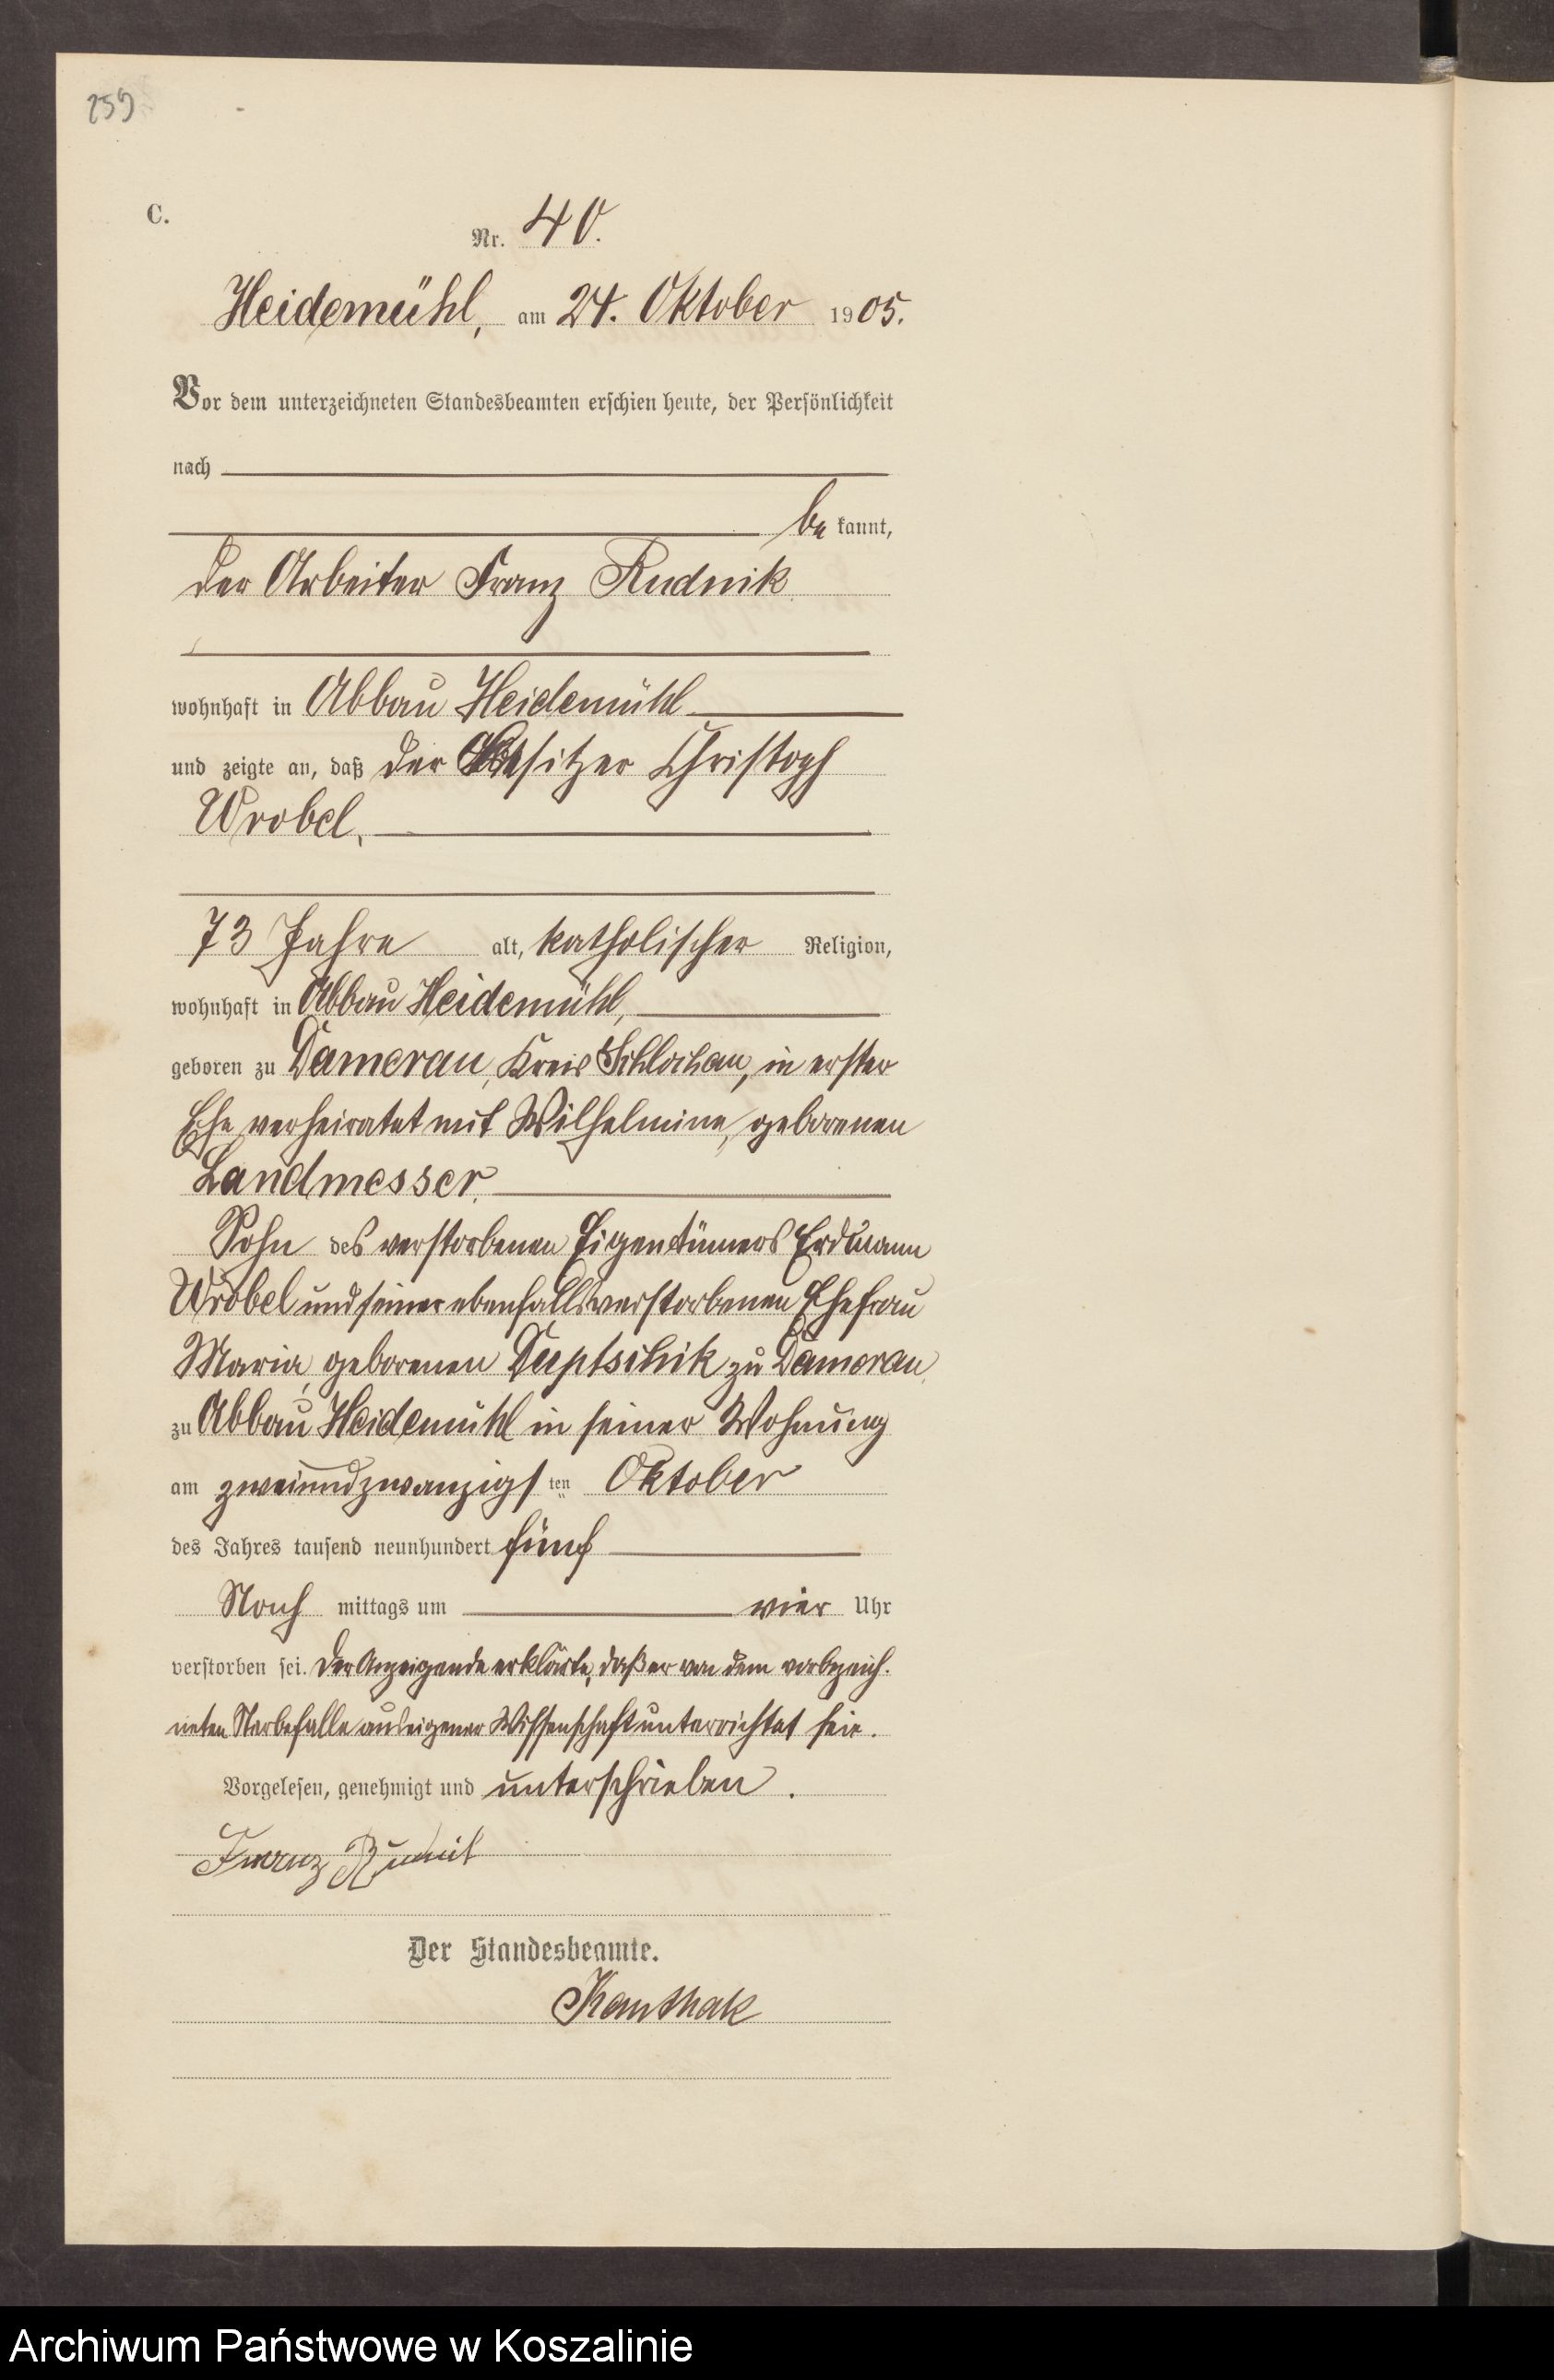 259
C.
Nr. 40.
Heidemühl, am 24. Oktober 1905.
Vor dem unterzeichneten Standesbeamten erschien heute, der Persönlichkeit
nach
be kannt,
der Arbeiter Franz Rudnik
wohnhaft in Abbau Heidemühl
und zeigte an, daß der Besitzer Christoph
Wrobel,
73 Jahre alt, katholischer Religion,
wohnhaft in Abbau Heidemühl,
geboren zu Damerau, Kreis Schlochau, in erster
Ehe verheiratet mit Wilhelmine, geborenen
Landmesser,
Sohn des verstorbenen Eigentümers Erdmann
Wrobel und seiner ebenfalls verstorbenen Ehefrau
Maria, geborenen zu Damerau,
zu Abbau Heidemühl in seiner Wohnung
am zweiundzwanzigsten Oktober
des Jahres tausend neunhundert fünf
Nach mittags um vier Uhr
verstorben sei. Der Anzeigende erklärte, daß er von dem vorbezeich-
neten Sterbefalle aus eigener Wissenschaft unterrichtet sei.
Vorgelesen, genehmigt und unterschrieben.
Franz
Der Standesbeamte.
Kanthak
Archiwum Państwowe w Koszalinie